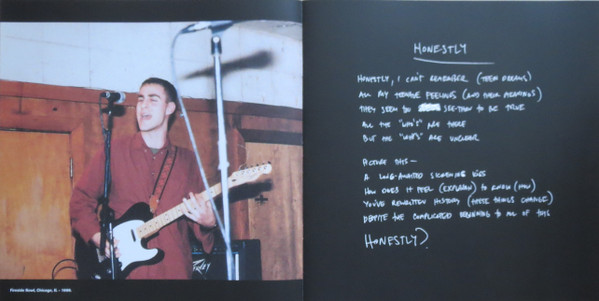 Fireside Bowl, Chicago, IL – 1998.
PEAVEY
HONESTLY
HONESTLY, I CAN'T REMEMBER (TEEN DREAMS)
ALL MY TEENAGE FEELINGS (AND THEIR MEANINGS)
THEY SEEM TO SEE-THRU TO BE TRUE
ALL THE "WHO'S" ARE THERE
BUT THE "WHY'S" ARE UNCLEAR
PICTURE THIS—
A LONG-AWAITED KISS
HOW DOES IT FEEL (EXPLAIN) TO KNOW (HOW)
YOU'VE REWRITTEN HISTORY (THESE THINGS CHANGE)
DESPITE THE COMPLICATED BEGINNING TO ALL OF THIS
HONESTLY?